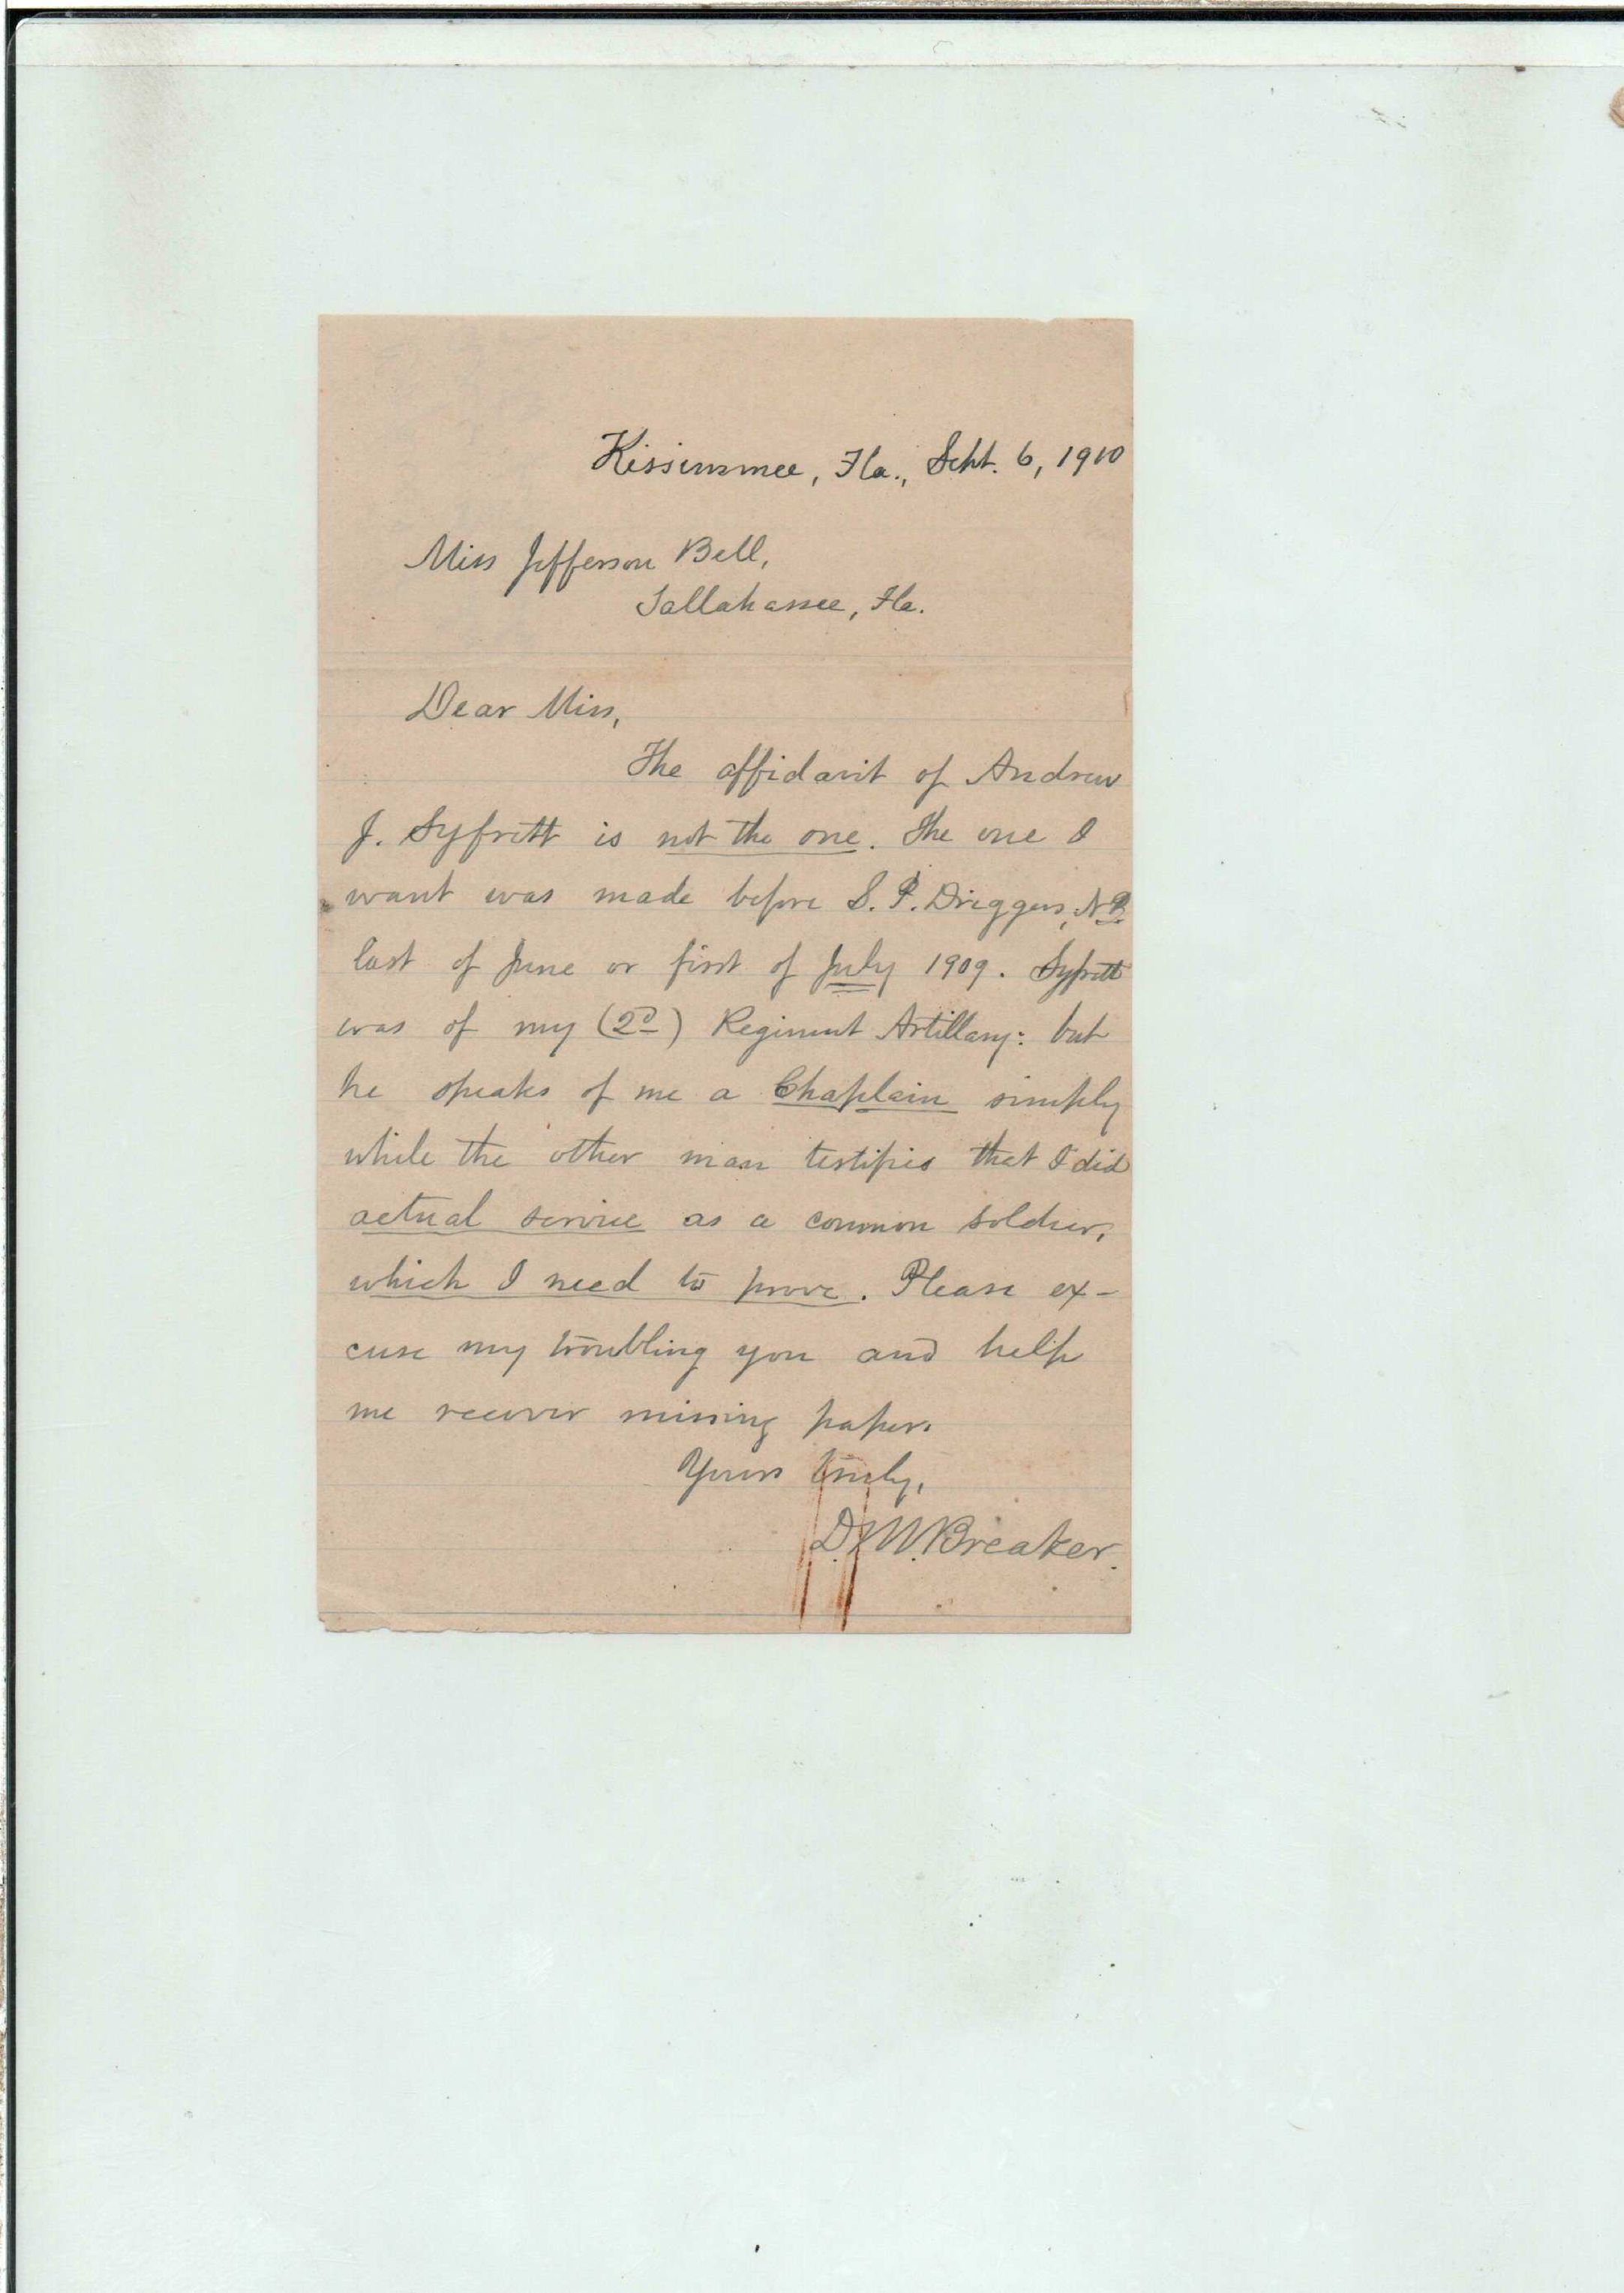 Kissimmee, Fla., Sept. 6, 1910
Miss Jefferson Bell,
Tallahassee, Fla.
Dear Miss,
The affidavit of Andrew
J. Syfritt is not the one. The one I
want was made before S. P. Driggers, N.P.
last of June or first of July 1909. Syfritt
was of my (2d) Regiment Artillary: but
he speaks of me a Chaplain simply
while the other man testifies that I did
actual service as a common soldier,
which I need to prove. Please ex-
cuse my troubling you and help
me recover missing paper.
Yours truly,
D. W. Breaker.